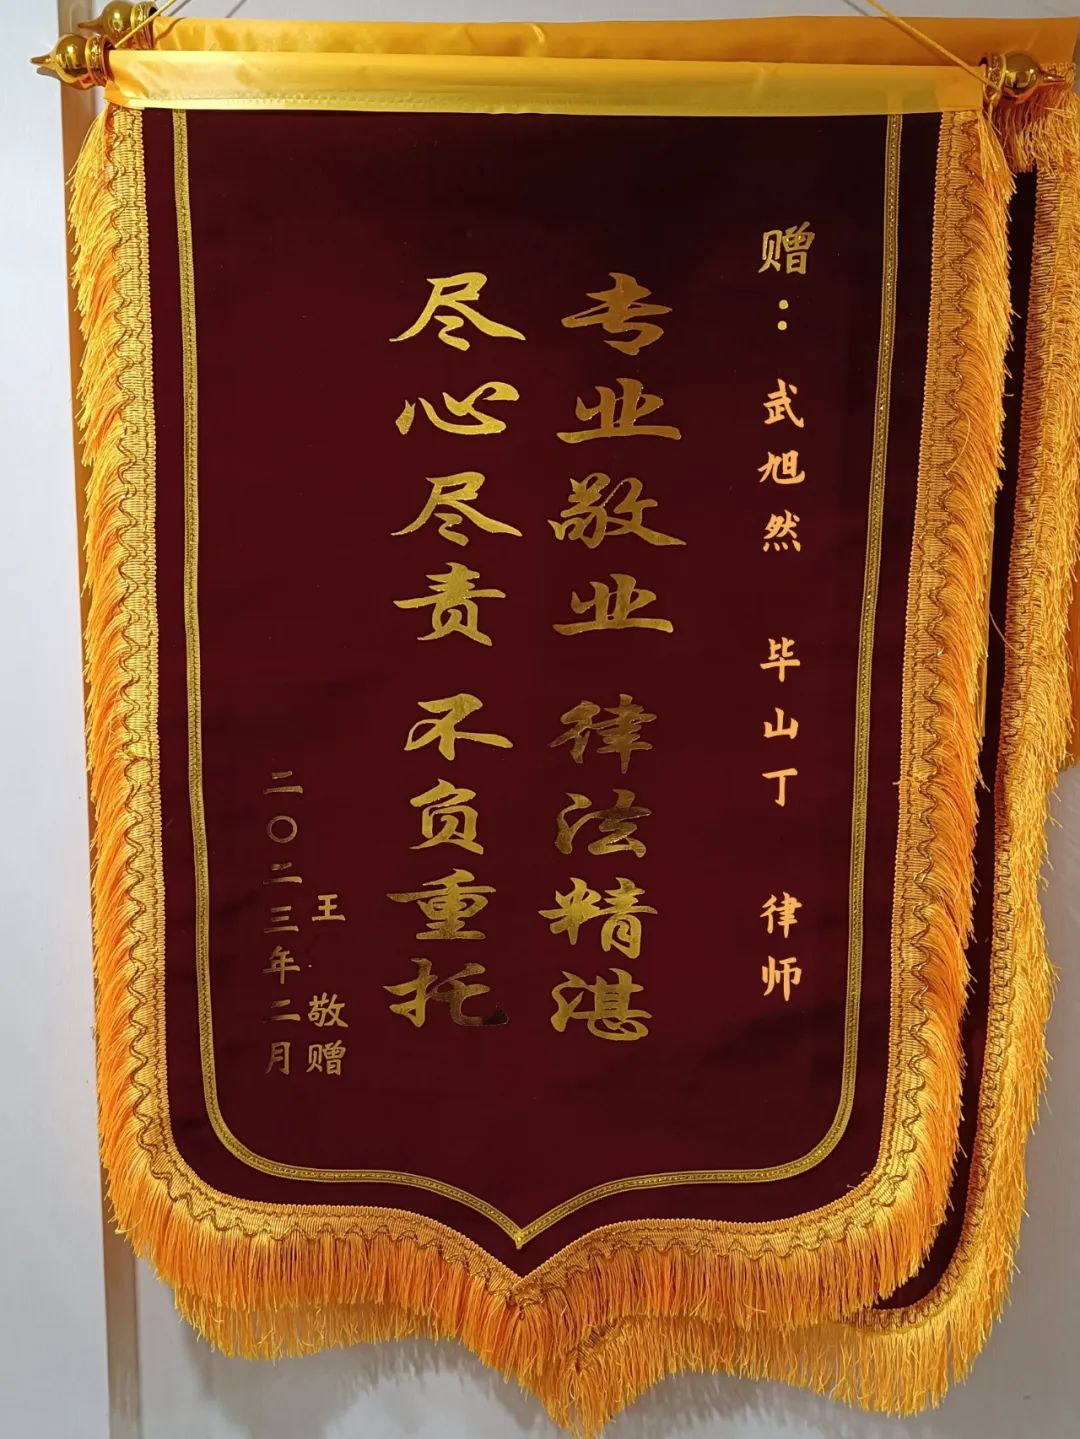 赠：武旭然 毕山丁 律师
专业敬业 律法精湛
尽心尽责 不负重托
王 敬赠
二〇二三年二月